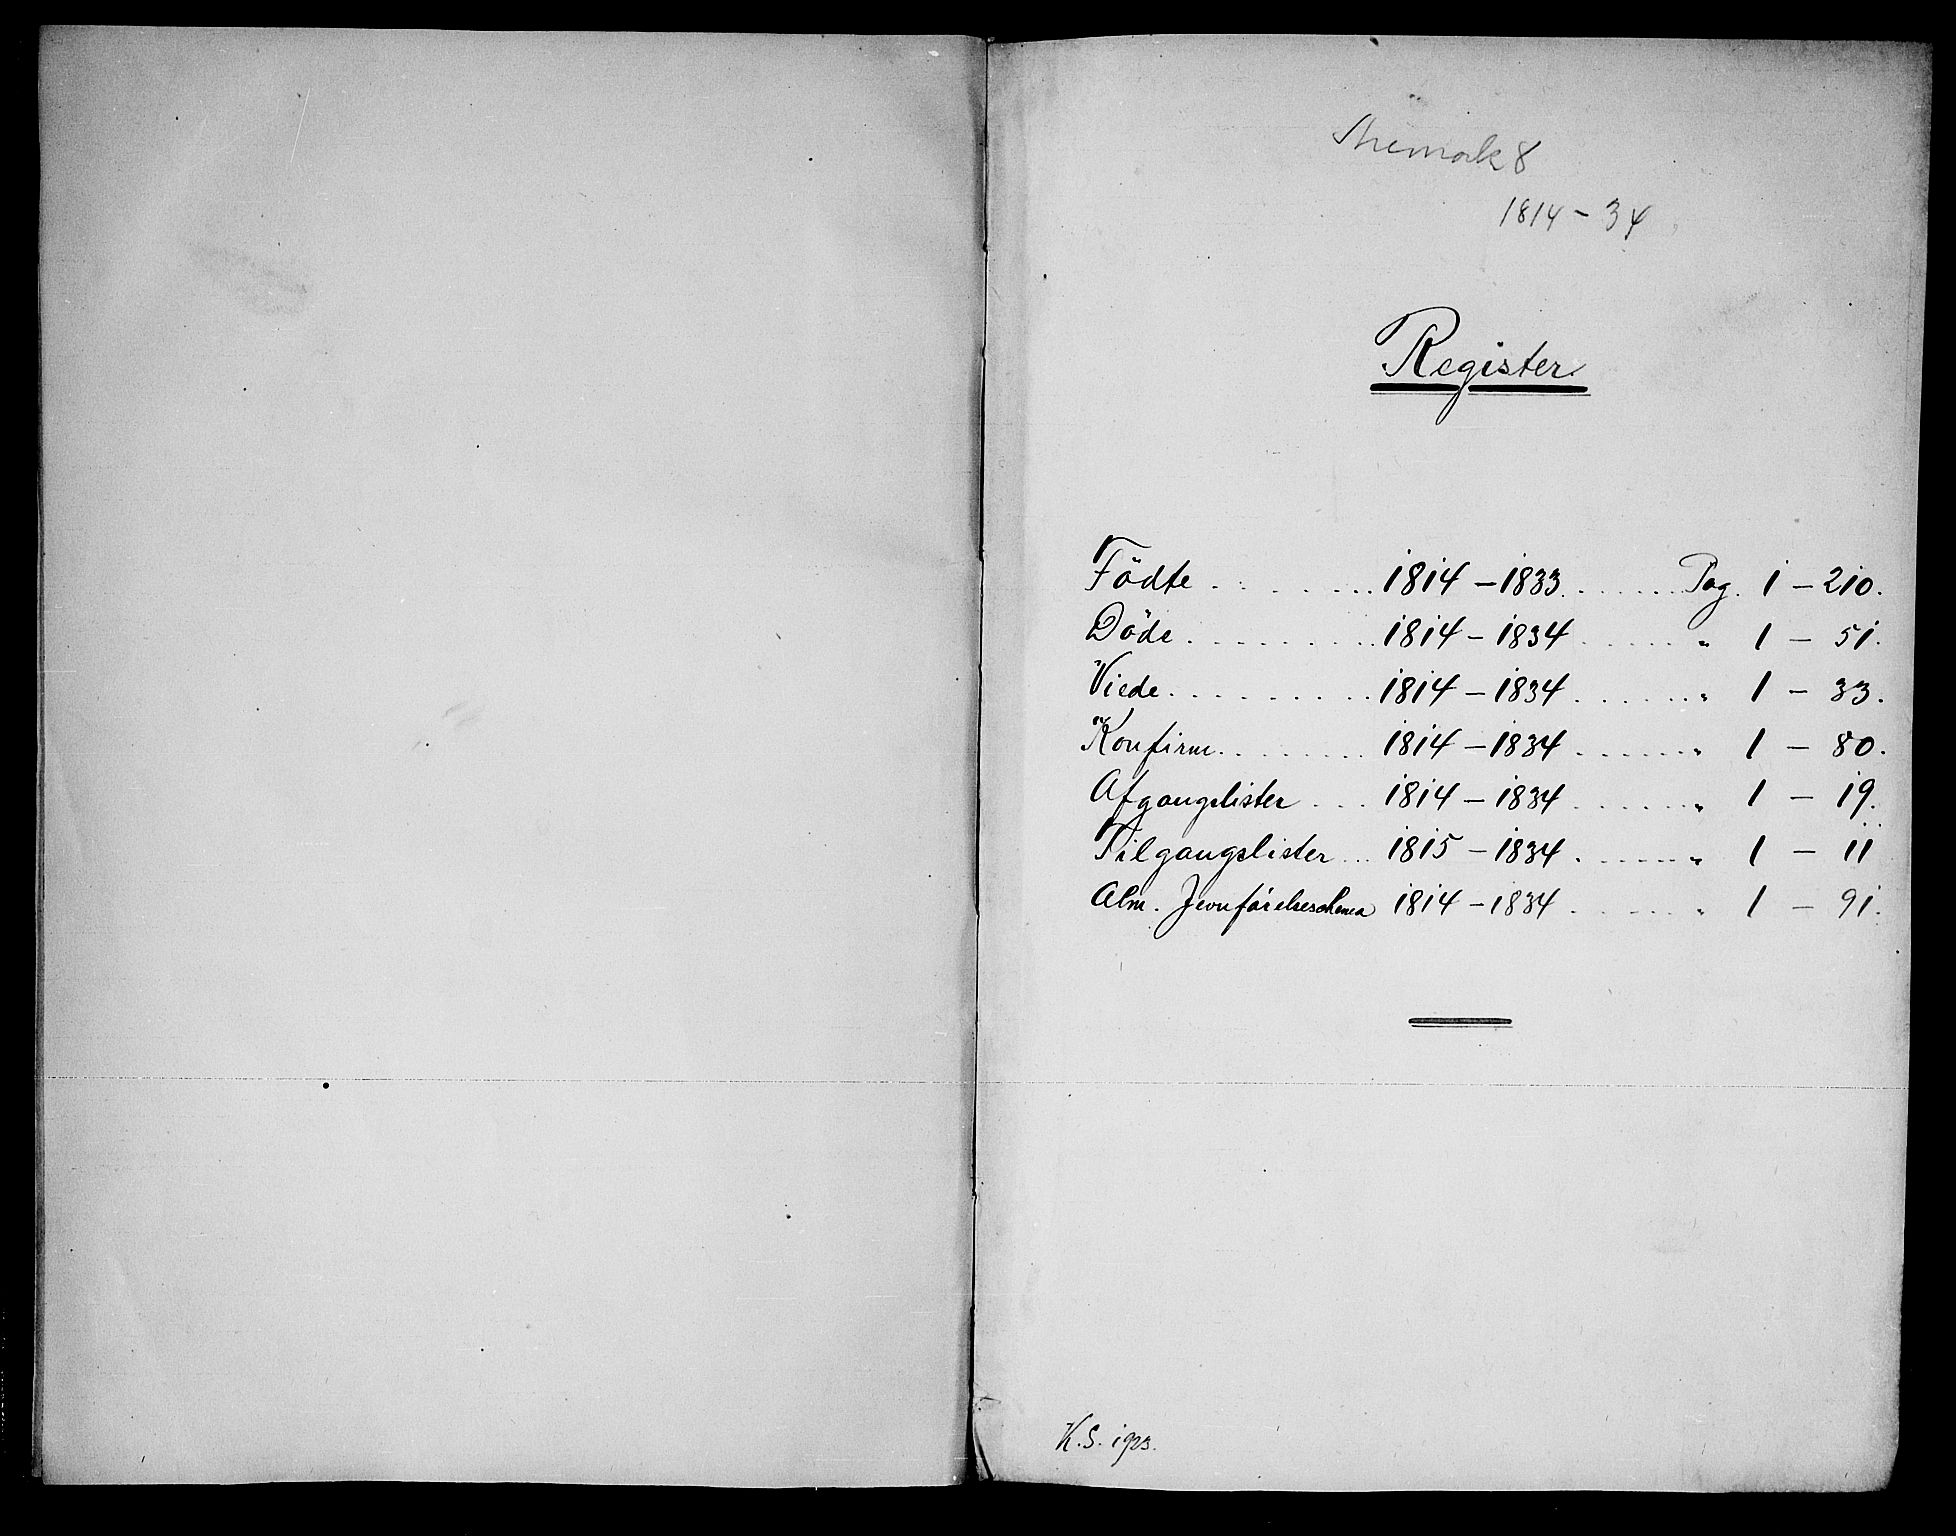 Aremark 8
1814 - 34
Register
Födte . . . . . . . 1814 – 1833 . . . . . . . Pag. 1 – 210.
Döde . . . . . . . . . 1814 – 1834 . . . . . . „ 1 – 51.
Viede . . . . . . . . . 1814 – 1834 . . . . . . „ 1 – 33.
Konfirm. . . . . . . . 1814 – 1834 . . . . . . „ 1 – 80.
Afgangslister . . . 1814 – 1834 . . . . . . „ 1 – 19.
Tilgangslister . . . 1815 – 1834 . . . . . . „ 1 – 11
Alm. Jevnförelseschema 1814 – 1834 . . . . . . „ 1 – 91.
K.S. 1923.